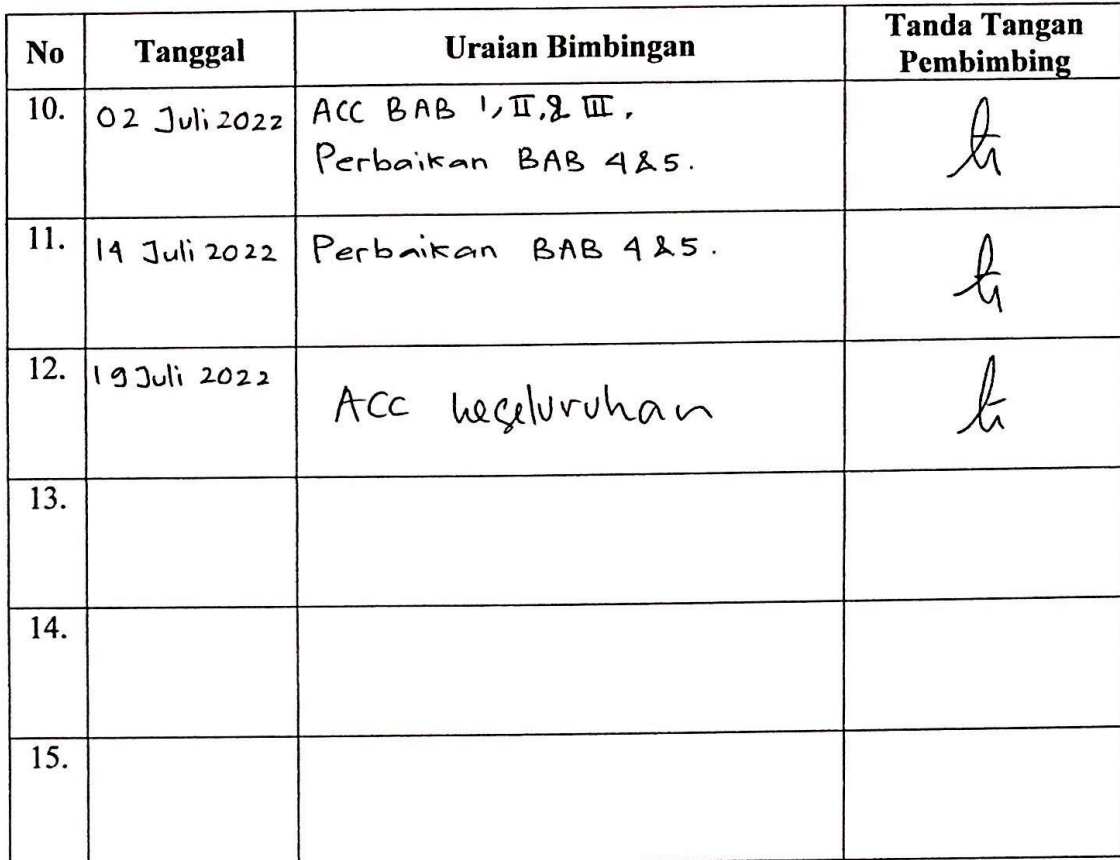 No Tanggal Uraian Bimbingan Tanda Tangan Pembimbing
10. 02 Juli 2022 ACC BAB I, II, & III.
Perbaikan BAB 4 & 5.
11. 14 Juli 2022 Perbaikan BAB 4 & 5.
12. 19 Juli 2022 ACC keseluruhan
13.
14.
15.